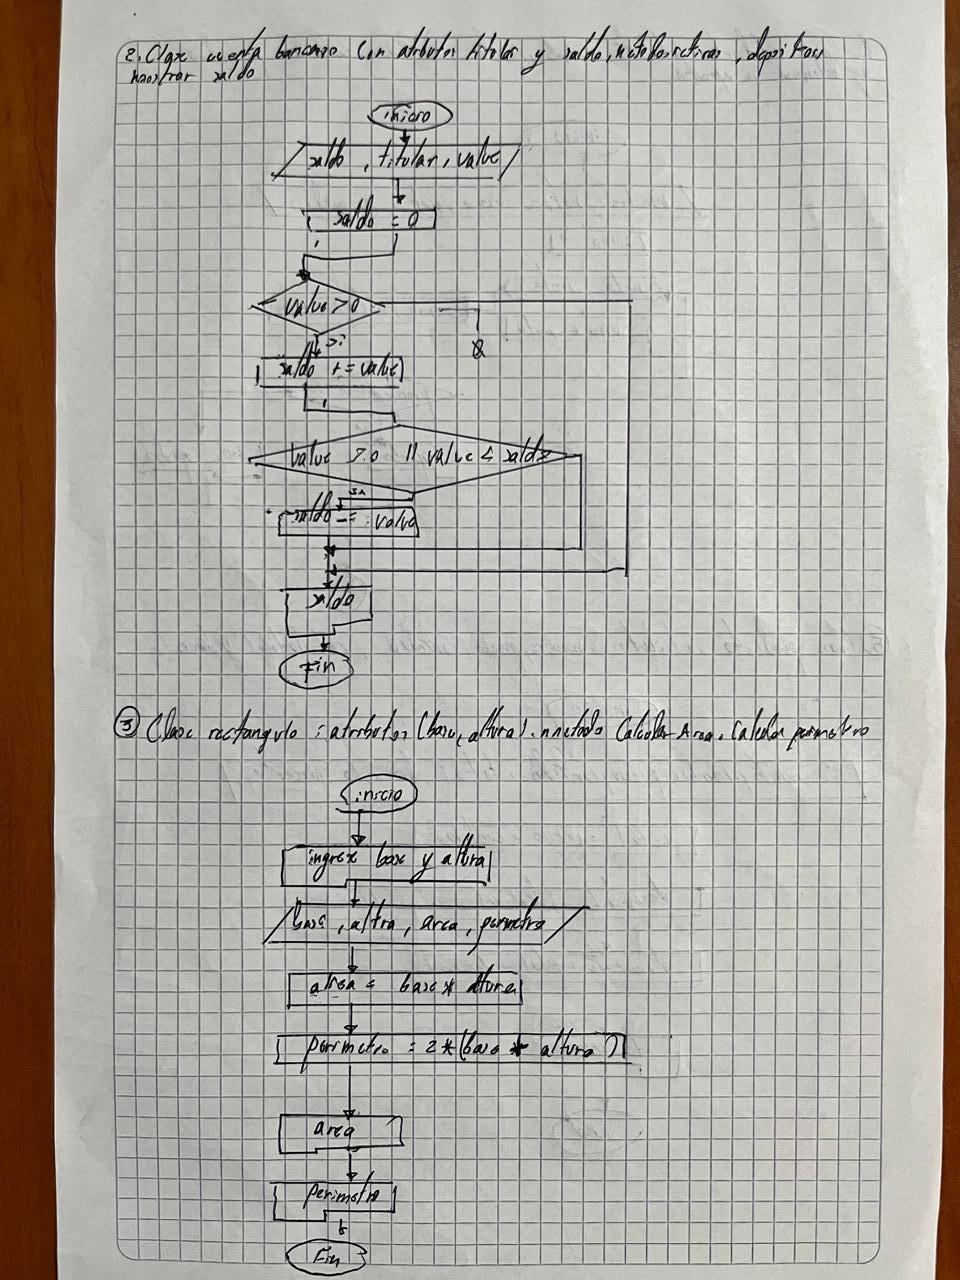 2. Clase cuenta bancario con atributos titular y saldo, metodos retiros, depositos
mostrar saldo
inicio
saldo, titular, value
saldo = 0
value > 0
si
saldo += value
value > 0 || value ≤ saldo
saldo -= value
saldo
Fin
③ Clase rectangulo : atributos (base, altura). metodo Calcular Area. Calcular perimetro
inicio
ingrese base y altura
base, altra, area, perimetra
area = base * altura
perimetro = 2 * (base * altura)
area
perimetro
Fin